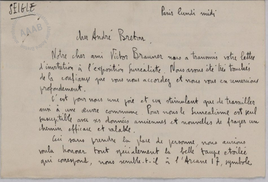 SEIGLE
Paris lundi midi
cher André Breton
Notre cher ami Victor Brauner nous a transmis votre lettre
d'invitation à l'exposition surréaliste. Nous avons été touchés
de la confiance que vous nous accordez et nous vous en remercions
profondément.
C'est pour nous une joie et un stimulant que de travailler
avec à une œuvre commune. Pour nous le Surréalisme est seul
susceptible de données nouvelles de frayer un
chemin efficace et valable.
sans prendre la place de personne nous avions
voulu honorer tout spécialement la belle
qui correspond, nous semble-t-il à l'Arcane 17, symbole